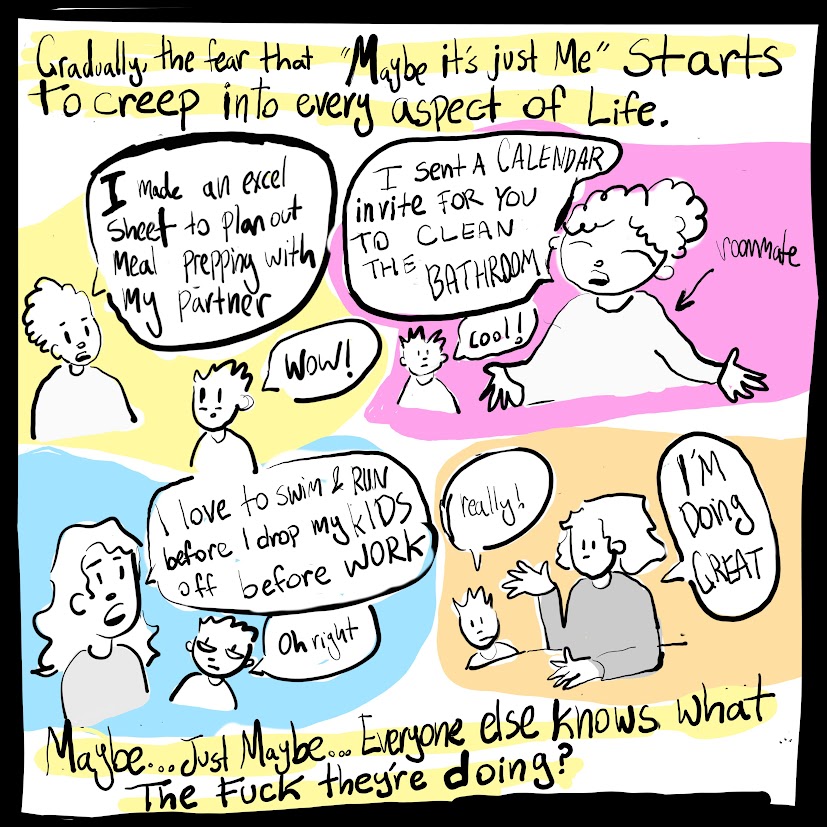 Gradually, the fear that "Maybe it's just Me" Starts
to creep into every aspect of Life.
I made an excel
sheet to plan out
Meal prepping with
My partner
WOW!
I sent A CALENDAR
invite FOR YOU
TO CLEAN
THE BATHROOM
cool!
roommate
I love to swim & RUN
before I drop my KIDS
off before WORK
Oh right
really!
I'M
Doing
GREAT
Maybe... Just Maybe... Everyone else knows what
The Fuck they're doing?